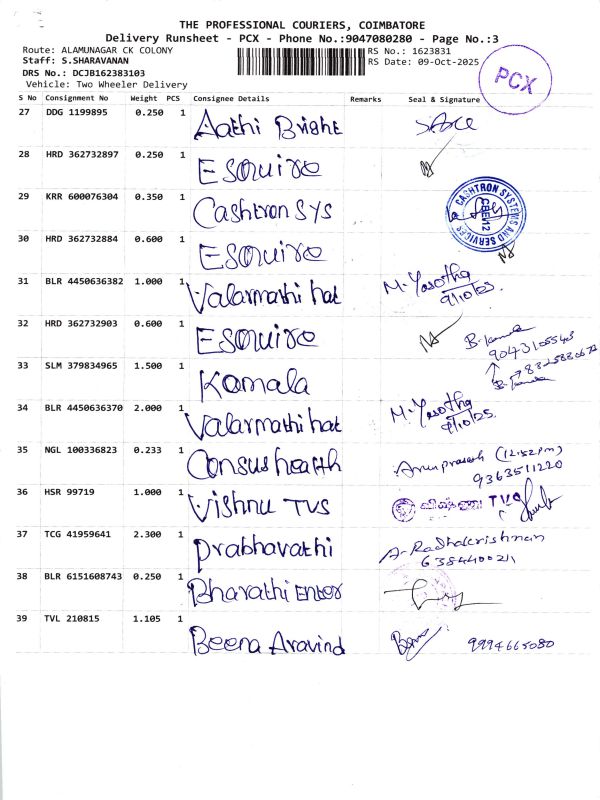 THE PROFESSIONAL COURIERS, COIMBATORE
Delivery Runsheet - PCX - Phone No.:9047080280 - Page No.:3
Route: ALAMUNAGAR CK COLONY
RS No.: 1623831
Staff: S.SHARAVANAN
RS Date: 09-Oct-2025
DRS No.: DCJB162383103
Vehicle: Two Wheeler Delivery
PCX
S No Consignment No Weight PCS Consignee Details Remarks Seal & Signature
27 DDG 1199895 0.250 1 Aathi Bright
28 HRD 362732897 0.250 1 Esquire
29 KRR 600076304 0.350 1 Cashtron SYS
CASHTRON SYSTEMS AND SERVICES
CBE-12
30 HRD 362732884 0.600 1 Esquire
31 BLR 4450636382 1.000 1 Valarmathi hat M. Yasotha
9/10/25
32 HRD 362732903 0.600 1 Esquire
9043105543
33 SLM 379834965 1.500 1 Kamala
34 BLR 4450636370 2.000 1 Valarmathi hat M. Yasotha
9/10/25
35 NGL 100336823 0.233 1 Consus health Arunprasath (12:52pm)
9363511220
36 HSR 99719 1.000 1 Vishnu TVS விஷ்ணு TVS
37 TCG 41959641 2.300 1 Prabhavathi A. Radhakrishnan
6384400211
38 BLR 6151608743 0.250 1 Bharathi Enter
39 TVL 210815 1.105 1 Beena Aravind 9994665080